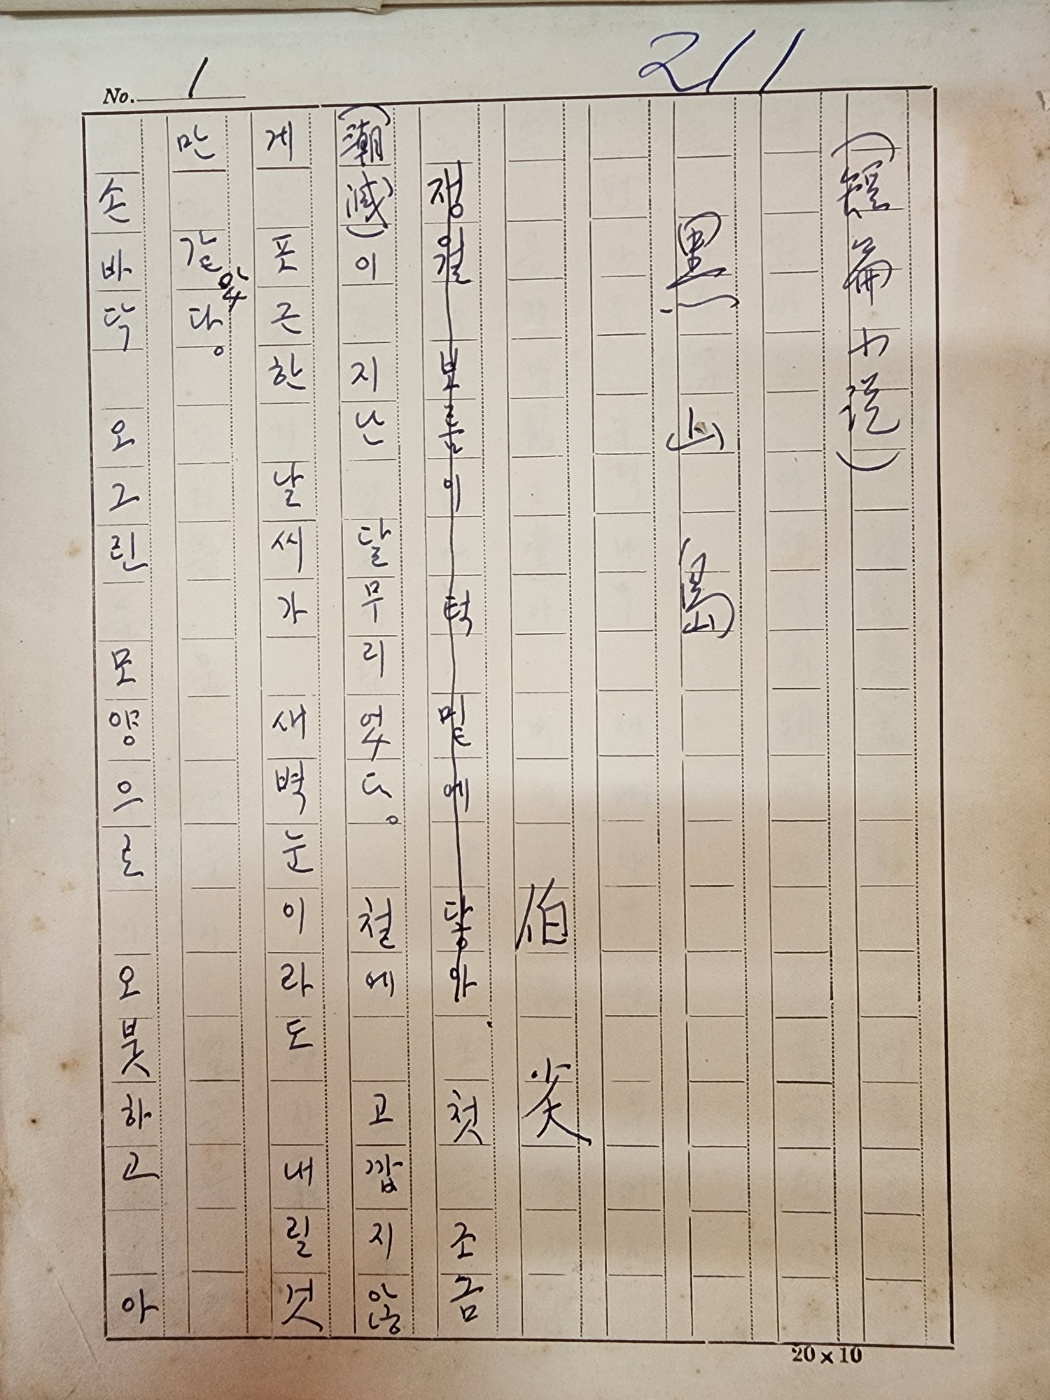 No. 1
211
(短篇小説)
黑山島
伯尖
정월 보름이 턱 밑에 닿아 첫 조금
(潮減)이 지난 달무리 었다. 철에 고깝지 않
게 푼근한 날씨가 새벽 눈이라도 내릴 것
만 같았다.
손바닥 오그린 모양으로 오붓하고 아
20×10